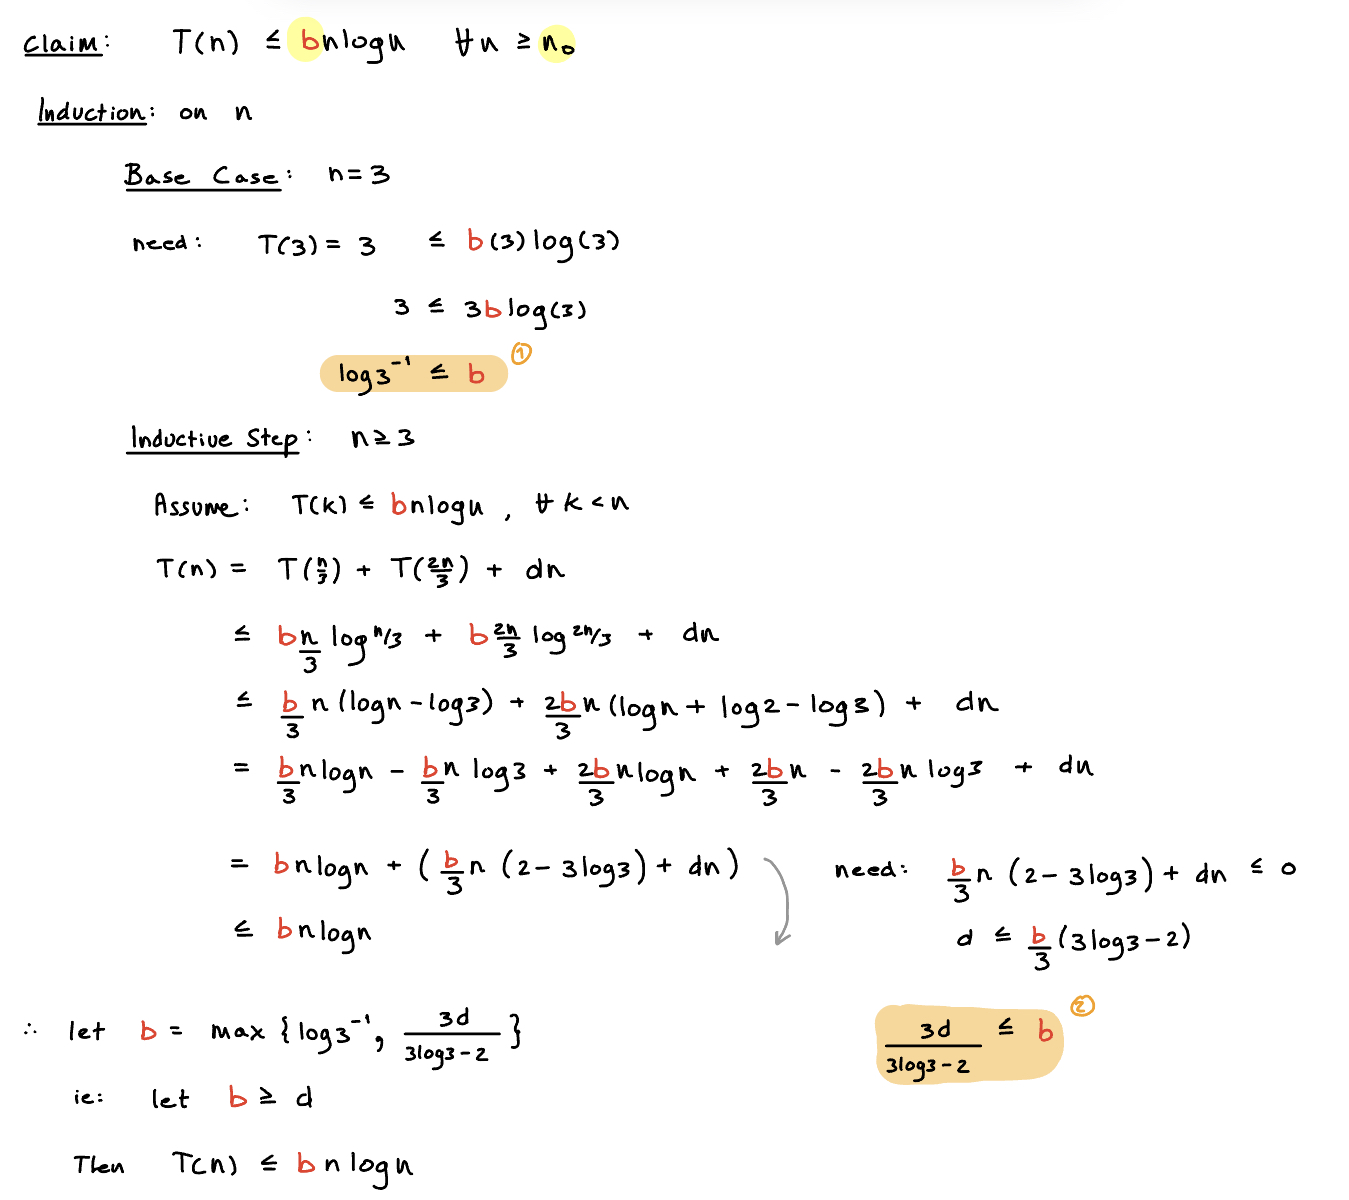 Claim: T(n) ≤ bnlogn ∀n ≥ n₀
Induction: on n
Base Case: n=3
need: T(3) = 3 ≤ b(3)log(3)
3 ≤ 3blog(3)
log3⁻¹ ≤ b ①
Inductive Step: n≥3
Assume: T(k) ≤ bnlogn , ∀ k<n
T(n) = T(n/3) + T(2n/3) + dn
≤ bn/3 log n/3 + b 2n/3 log 2n/3 + dn
≤ b/3 n (logn - log3) + 2b/3 n (logn + log2 - log3) + dn
= b/3 nlogn - b/3 n log3 + 2b/3 nlogn + 2b/3 n - 2b/3 n log3 + dn
= bnlogn + (b/3 n (2 - 3log3) + dn) need: b/3 n (2 - 3log3) + dn ≤ 0
≤ bnlogn d ≤ b/3 (3log3-2)
∴ let b = max {log3⁻¹, 3d/(3log3-2)} 3d/(3log3-2) ≤ b ②
ie: let b ≥ d
Then T(n) ≤ bnlogn